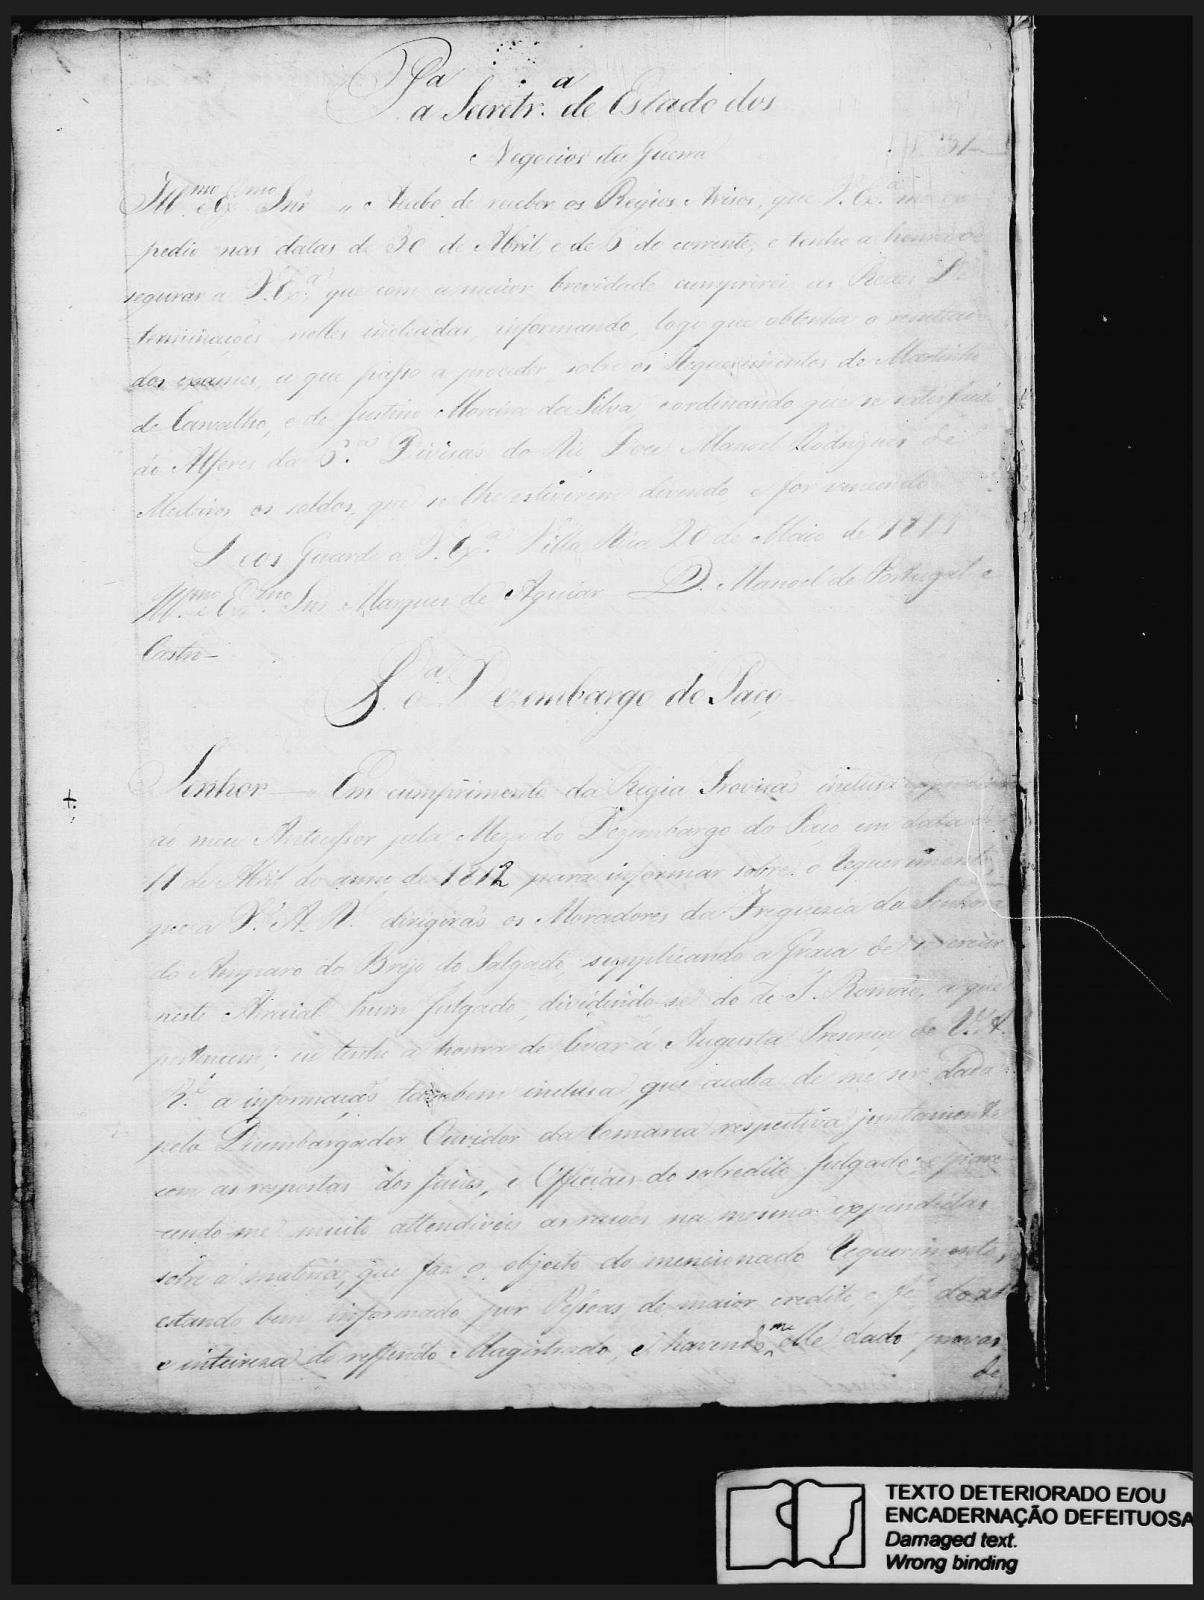 Pa
a Secretr.a de Estado dos
Negocios da Guerra
Ill.mo e Ex.mo Snr „ Acabo de receber os Regios Avisos, que V. Ex.a me ex
pedio nas datas de 30 de Abril, e de 6 do corrente, e tenho a honra de
segurar a V. Ex.a que com a maior brevidade cumprirei as Reaes De
terminaçoẽs nelles incluidas, informando, logo que obtenha o resultado
dos exames, a que passo a proceder sobre os Requerimentos de Martinho
de Carvalho, e de Justino Moreira da Silva, e ordenando que se satisfaça
ao Alferes da 6.a Divisaõ do Rio Doce Manoel Rodrigues de
Medeiros os soldos, que se lhe estiverem devendo, e for vencendo
Deos Guarde a V. Ex.a Villa Rica 20 de Maio de 1814
Ill.mo e Ex.mo Snr Marquez de Aguiar D. Manoel de Portugal e
Castro—
P.a o Dezembargo do Paço
Senhor — Em cumprimento da Regia Provizaõ inclusa expedida
ao meu Antecessor pela Meza do Dezembargo do Paço em data de
11 de Abril do anno de 1812 para informar sobre o Requerimento,
que a V. A. R. dirigiraõ os Moradores da Freguezia da Senhora
do Amparo do Brejo do Salgado, supplicando a Graça de se crear
neste Arraial hum Julgado, dividindo-se do de S. Romaõ, a que
pertencem; eu tenho a honra de levar á Augusta Presença de V. A.
R. a informaçaõ tambem inclusa que acaba de me ser dada
pelo Dezembargador Ouvidor da Comarca respectiva juntamente
com as respostas dos Juizes, e Officiaes do sobredito Julgado; e pare
cendo-me muito attendiveis as razoẽs na mesma expendidas
sobre a materia, que faz o objecto do mencionado Requerimento,
estando bem informado por Pessoas de maior credito, e fé do zelo
e inteireza do refferido Magistrado, e havendo me elle dado provas
de
TEXTO DETERIORADO E/OU
ENCADERNAÇÃO DEFEITUOSA
Damaged text.
Wrong binding